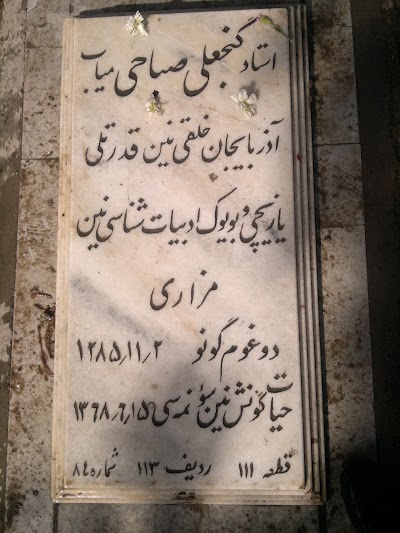 استاد گنجعلی صباحی میاب
آذربایجان خلقی نین قدرتلی
یازیچی و بویوک ادبیات شناسی نین
مزاری
دوغوم گونو ۱۲۸۵٫۱۱٫۲
حیات گونش نین سؤنمه سی ۱۳۶۸٫۶٫۱۵
قطعه ۱۱۱ ردیف ۱۱۳ شماره ۸۴